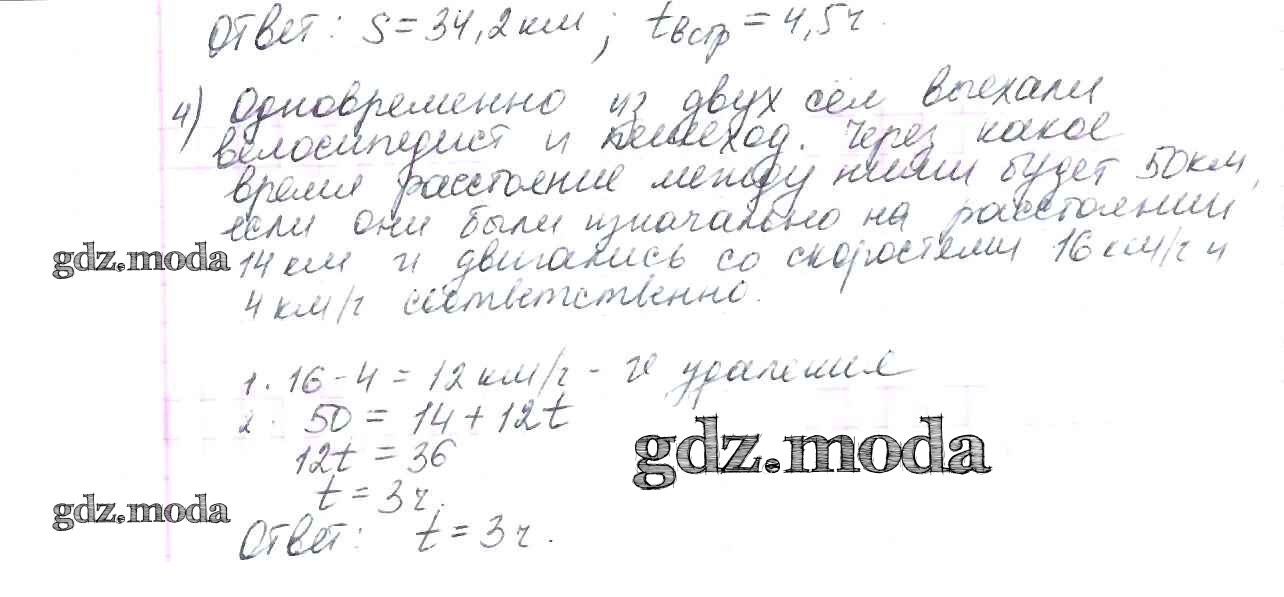 Ответ: S = 34,2 км; tвстр = 4,5 ч.
4) Одновременно из двух сёл выехали
велосипедист и пешеход. Через какое
время расстояние между ними будет 50 км,
если они были изначально на расстоянии
gdz.moda 14 км и двигались со скоростями 16 км/ч и
4 км/ч соответственно.
1. 16 - 4 = 12 км/ч - υ удаления
2. 50 = 14 + 12t
gdz.moda
12t = 36
gdz.moda t = 3 ч.
Ответ: t = 3 ч.